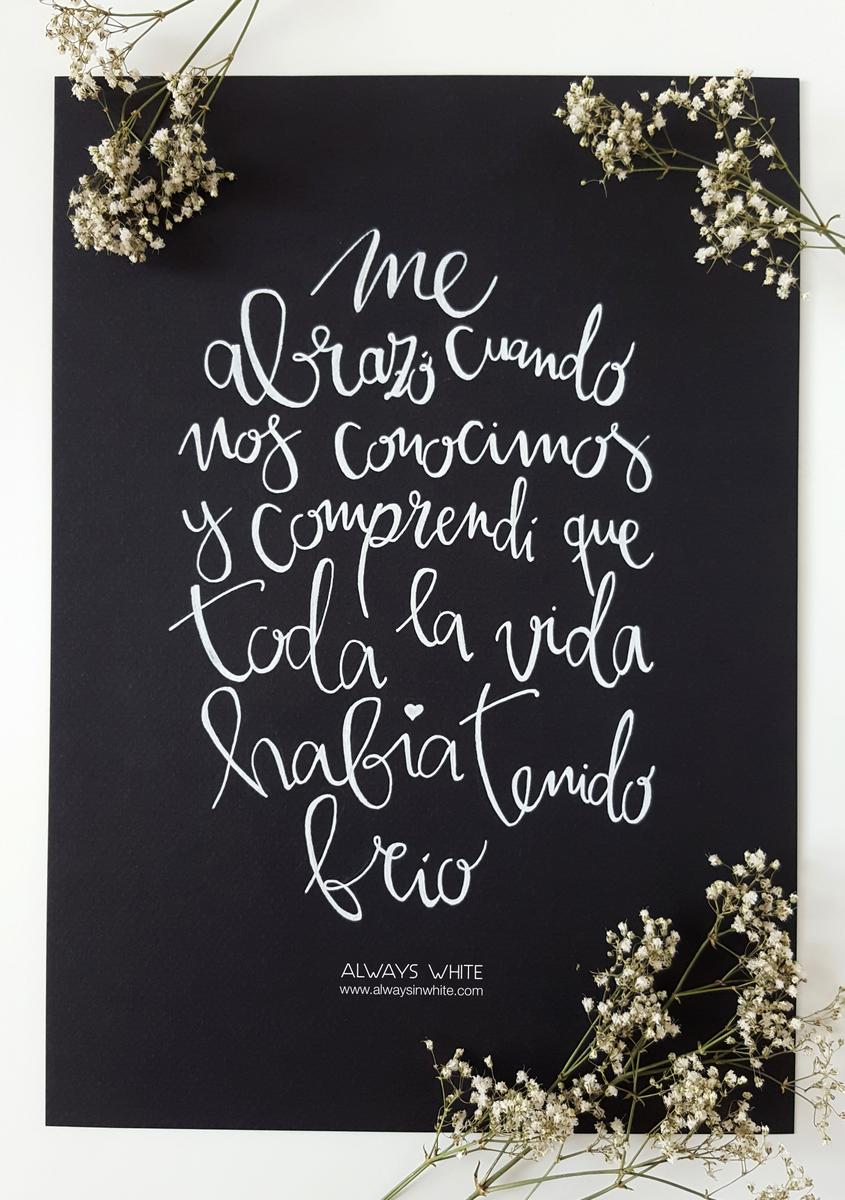 me
abrazó cuando
nos conocimos
y comprendi que
toda la vida
habia tenido
frio
ALWAYS WHITE
www.alwaysinwhite.com